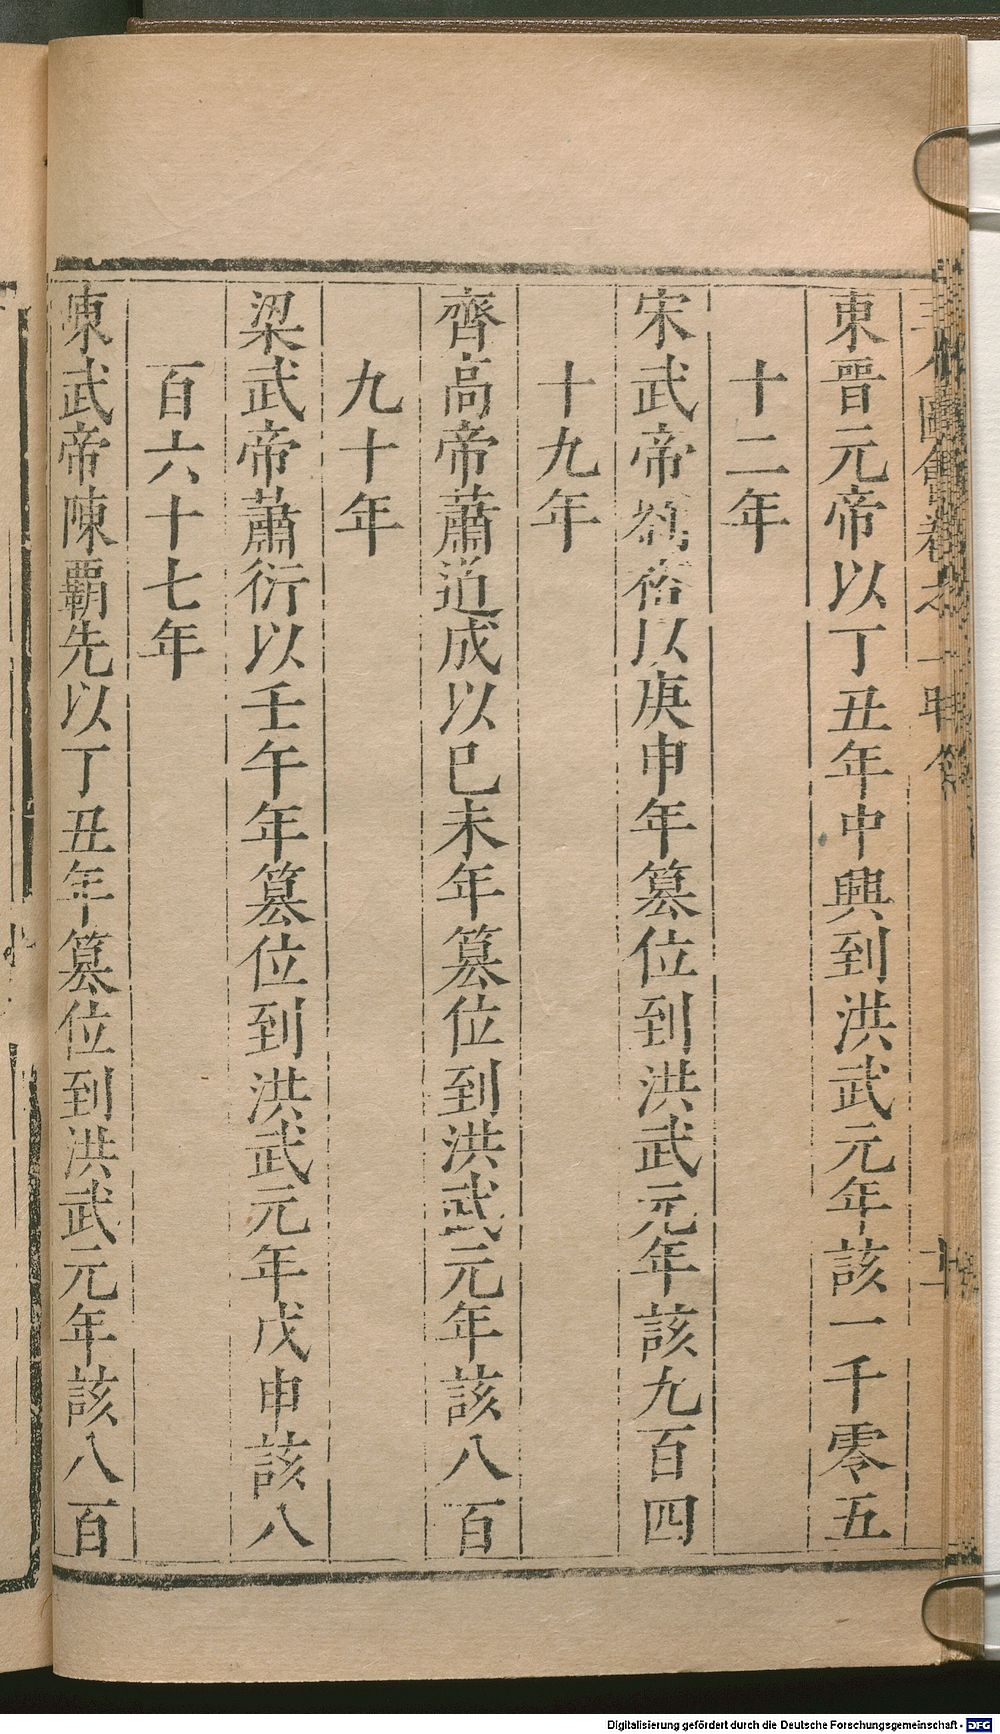 東晉元帝以丁丑年中興到洪武元年該一千零五
十二年
宋武帝裕以庚申年篡位到洪武元年該九百四
十九年
齊高帝蕭道成以巳未年篡位到洪武元年該八百
九十年
梁武帝蕭衍以壬午年篡位到洪武元年戊申該八
百六十七年
陳武帝陳覇先以丁丑年篡位到洪武元年該八百
Digitalisierung gefördert durch die Deutsche Forschungsgemeinschaft - DFG